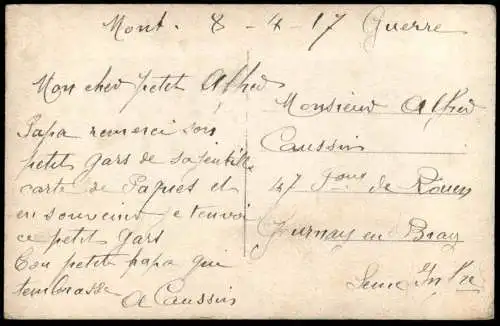 Mont. 8 - 4 - 17 Guerre
Mon cher petit Alfred
Papa remerci son
petit gars de sa jentille
carte de Paques et
en souvenir je t'envoi
ce petit gars
Ton petit papa qui
t'embrasse
A Caussin
Monsieur Alfred
Caussin
47 de Rouen
Gournay en Bray
Seine Infre